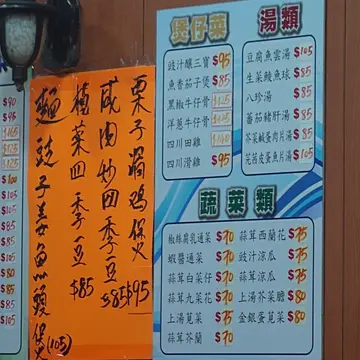 煲仔菜
豉汁釀三寶 $95
魚香茄子煲 $85
黑椒牛仔骨 $125
洋蔥牛仔骨 $125
四川田雞
四川滑雞 $95
湯類
豆腐魚雲湯 $105
生菜鯪魚球 $85
八珍湯 $85
蕃茄豬肝湯 $85
芥菜鹹蛋肉片湯 $85
芫茜皮蛋魚片湯 $105
蔬菜類
椒絲腐乳通菜 $70
蝦醬通菜 $70
蒜茸白菜仔 $70
蒜茸九菜花 $70
上湯莧菜 $75
蒜茸芥蘭 $70
蒜茸西蘭花 $75
豉汁涼瓜 $75
蒜茸涼瓜 $75
上湯芥菜膽 $80
金銀蛋莧菜 $80
栗子焗鷄煲 $95
咸肉炒四季豆 $85
欖菜四季豆 $85
麵豉子姜魚頭煲 (105)
$90
$95
$105
$125
$125
$100
$105
$85
$105
$85
$105
$80
$85
$85
$105